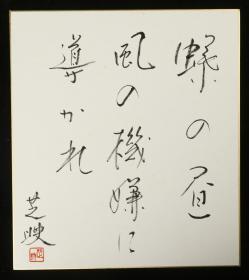 蝶の昼
風の機嫌に
導かれ
芝映